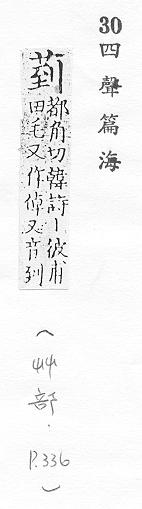 30 四聲篇海
菿 都角切韓詩丨彼甫
田毛又作倬又音到
(艸部．P.336)